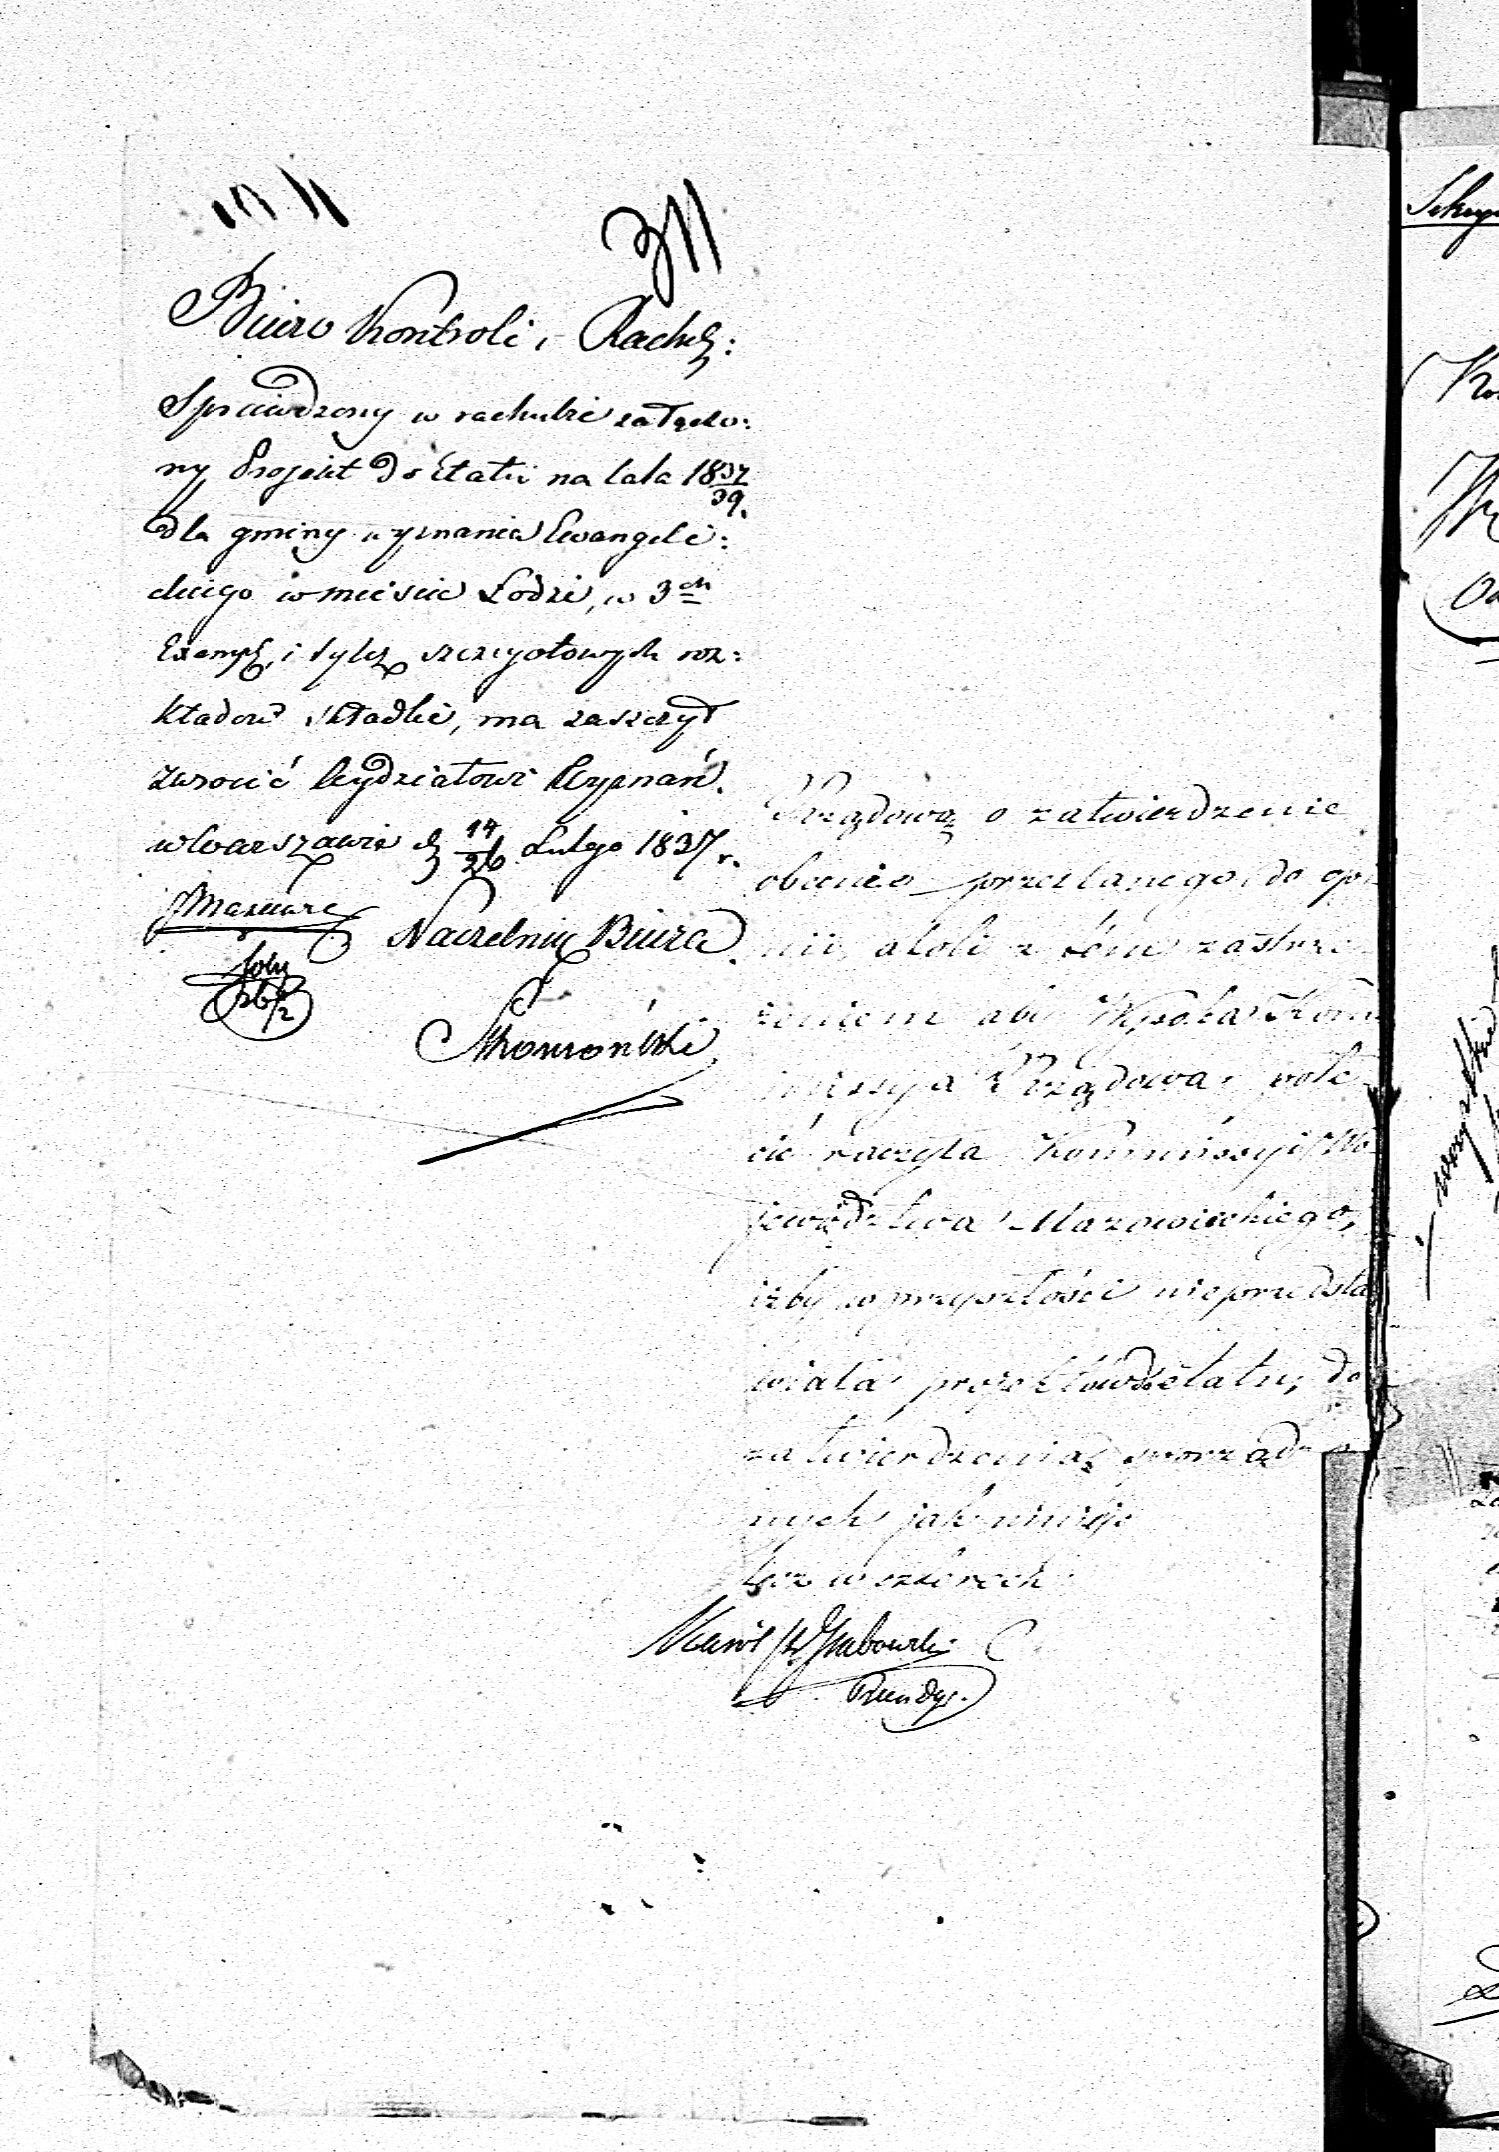 311
Biuro Kontroli i Rach:
Sprawdzony w rachubie załączo:
ny Projekt do Etatu na lata 1837/39.
dla gminy wyznania Ewangeli:
ckiego w mieście Łodzi, w 3ch
Exempl. i tyluż szczegółowych roz:
kładów składki, ma zaszczyt
zwrócić Wydziałowi Wyznań.
w Warszawie d 14/26 Lutego 1837 r.
Naczelnik Biura
Rządową o zatwierdzenie
obecnie przesłanego do opi
nii, atoli z tém zastrze
żeniem aby Wysoka Kom
missya Rządowa, pole
cić raczyła Kommissyi Wo
jewództwa Mazowieckiego,
iżby w przyszłości nieprzedsta
wiała projektów do etatu, do
zatwierdzenia, sporządzo
nych jak niniejs
lecz w